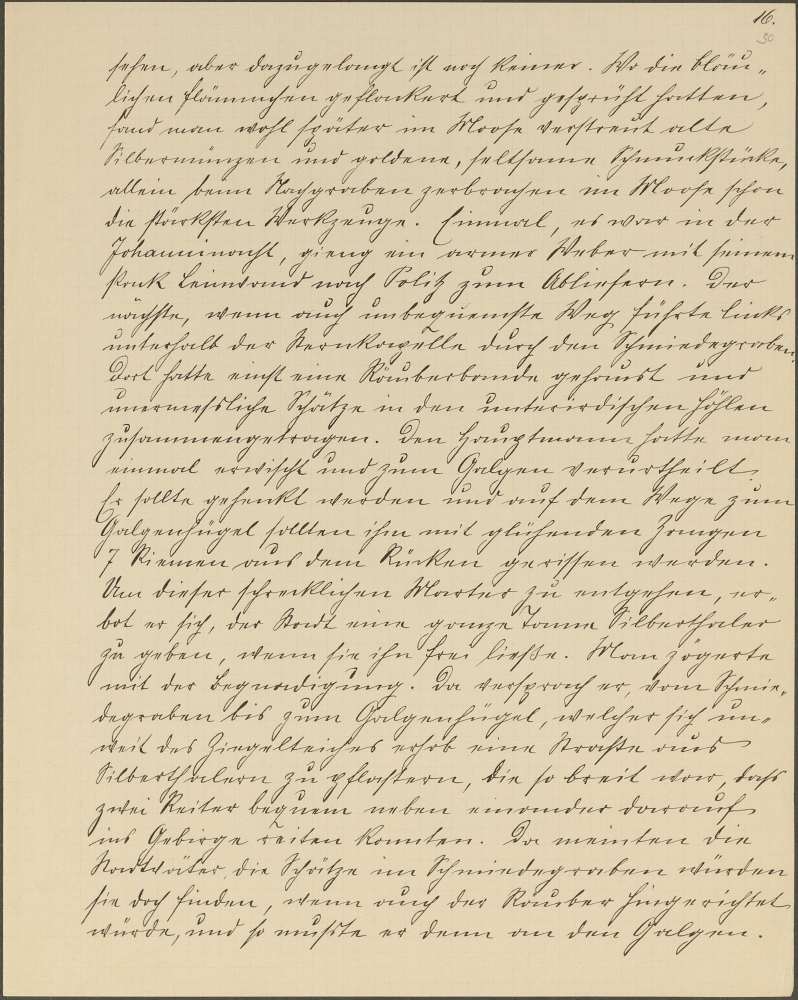 16.
50
sehen, aber dazugelangt ist noch keiner. Wo die bläu-
lichen Flämmchen geflackert und gesprüht hatten,
fand man wohl später im Moose verstreut alte
Silbermünzen und goldene, seltsame Schmuckstücke,
allein beim Nachgraben zerbrachen im Moose schon
die stärksten Werkzeuge. Einmal, es war in der
Johanninacht, gieng ein armer Weber mit seinem
Pack Leinwand nach Politz zum Abliefern. Der
nächste, wenn auch unbequemste Weg führte links
unterhalb der Sternkapelle durch den Schmiedegraben.
Dort hatte einst eine Räuberbande gehaust und
unermessliche Schätze in den unterirdischen Höhlen
zusammengetragen. Den Hauptmann hatte man
einmal erwischt und zum Galgen verurtheilt.
Er sollte gehenkt werden und auf dem Wege zum
Galgenhügel sollten ihm mit glühenden Zangen
7 Riemen aus dem Rücken gerissen werden.
Um dieser schrecklichen Marter zu entgehen, er-
bot er sich, der Stadt eine ganze Tonne Silberthaler
zu geben, wenn sie ihn frei ließe. Man zögerte
mit der Begnadigung. Da versprach er, vom Schmie-
degraben bis zum Galgenhügel, welcher sich un-
weit des Ziegelteiches erhob eine Straße aus
Silberthalern zu pflastern, die so breit war, dass
zwei Reiter bequem neben einander darauf
ins Gebirge reiten konnten. Da meinten die
Stadtväter, die Schätze im Schmiedegraben würden
sie doch finden, wenn auch der Räuber hingerichtet
würde, und so musste er denn an den Galgen.